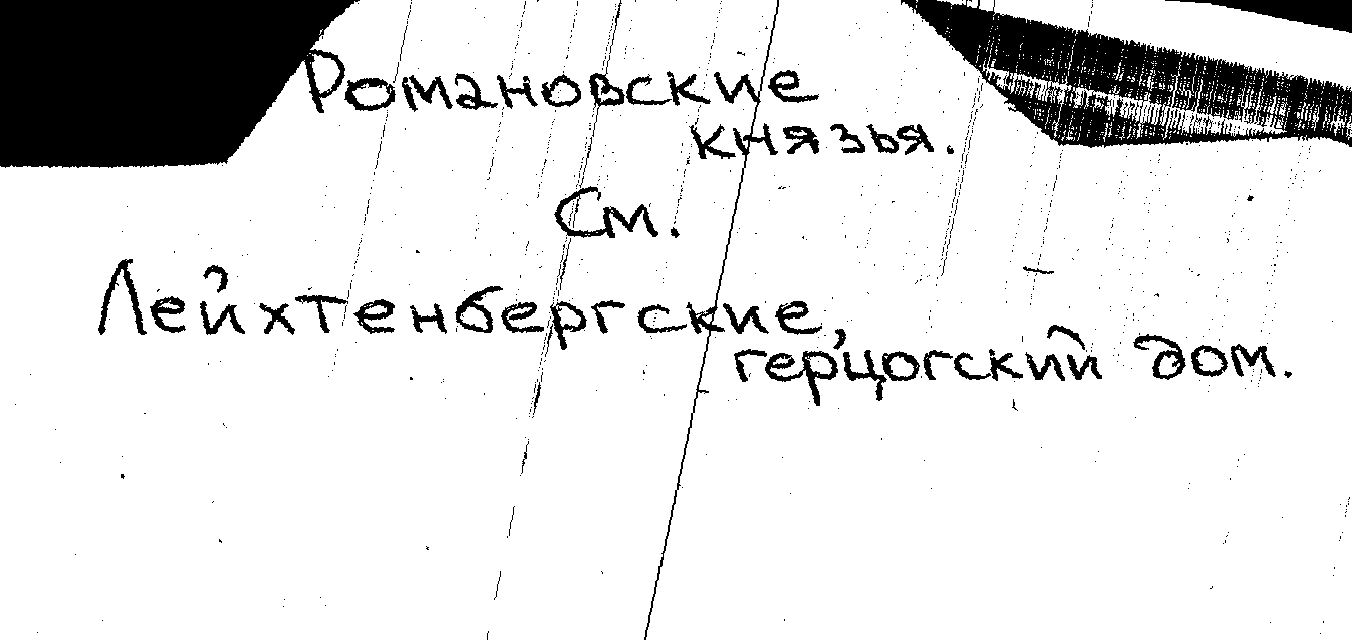 Романовские
князья.
См.
Лейхтенбергские,
герцогский дом.